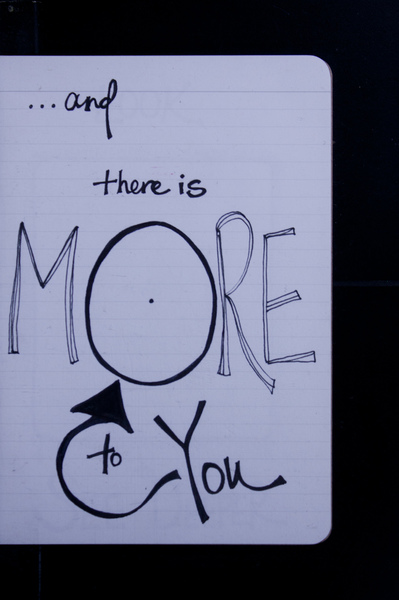 ...and
there is
MORE
to You